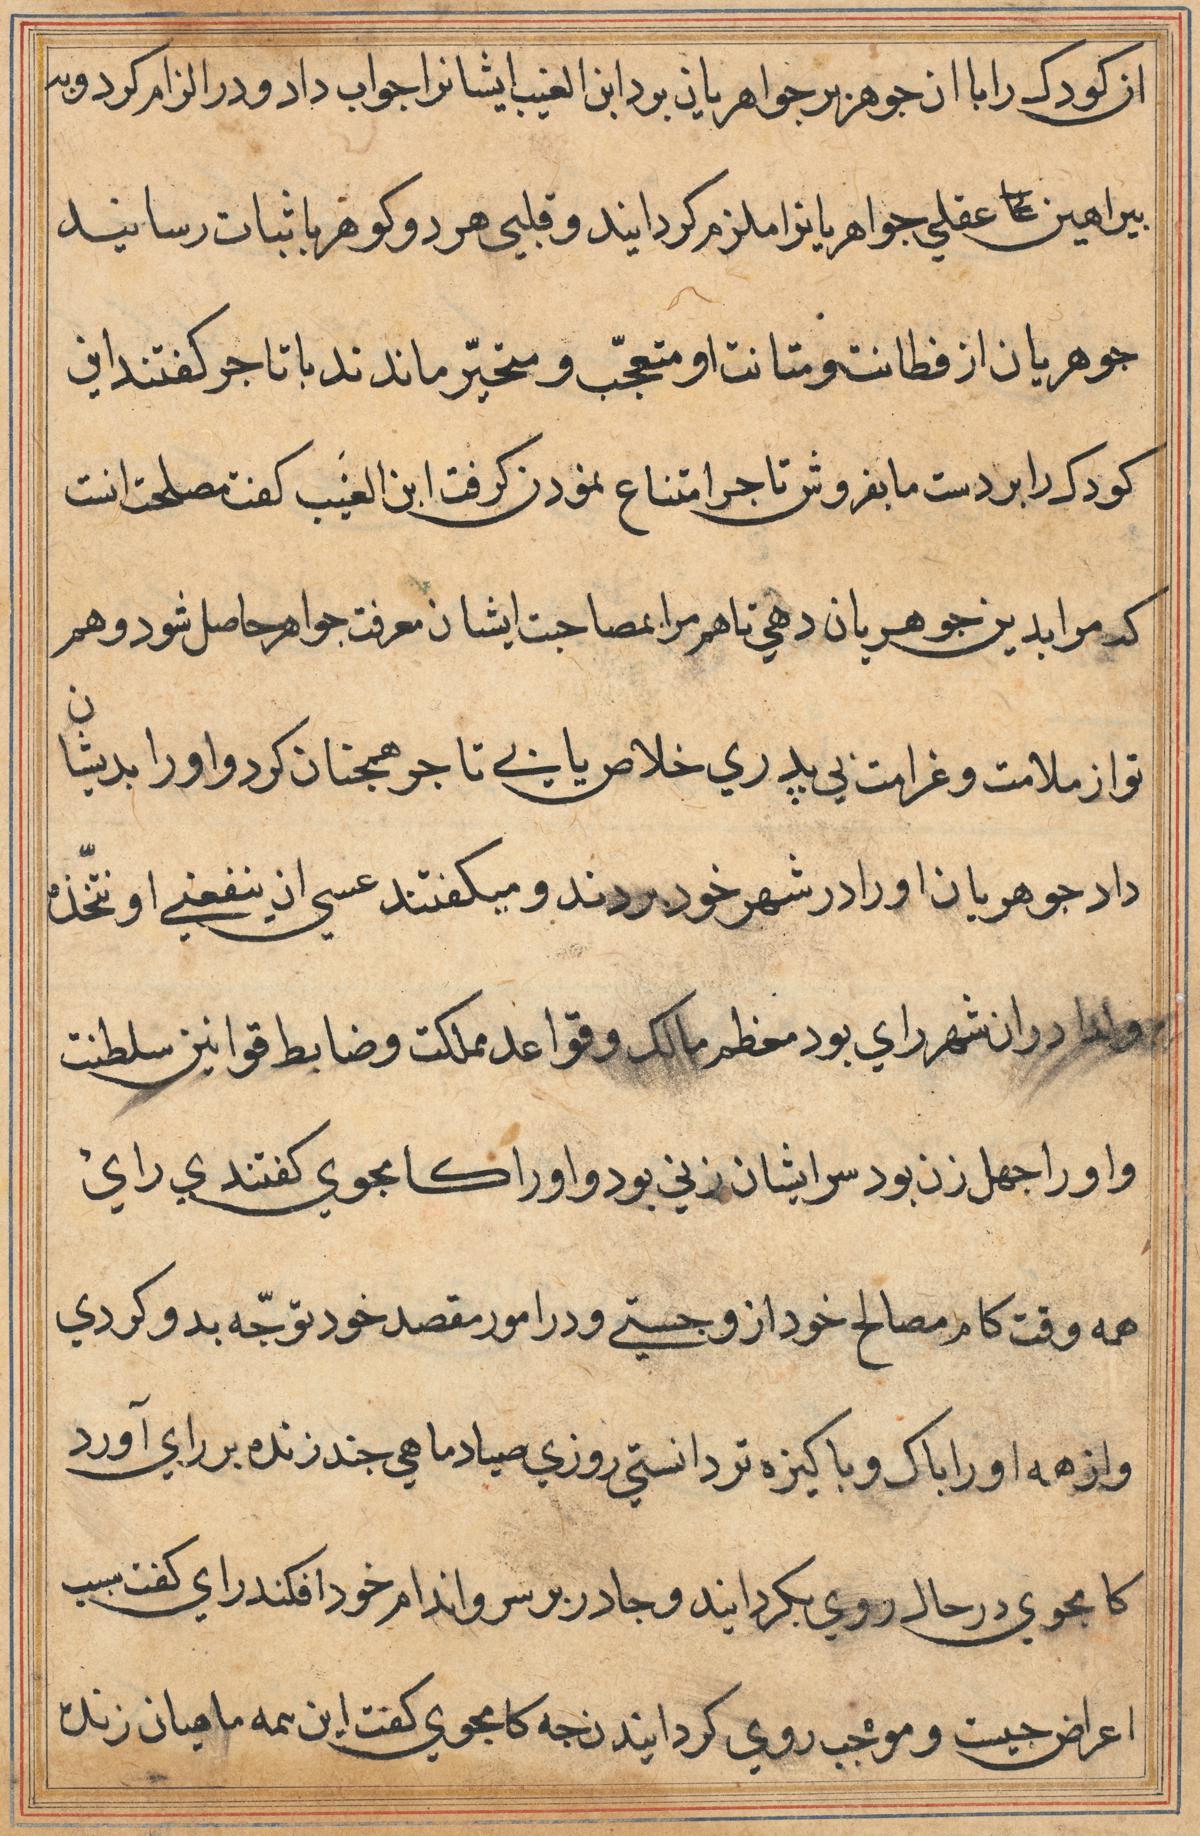 از کودک را با ان جوهر بر جواهریان بود ابن الغیب ایشانرا جواب داد و در الزام کرد و
ببراهین عقلی جواهریانرا ملزم کردایند و قلبی هر دو کوهر باثبات رسانید
جوهریان از فطانت و متانت او متعجّب و متحیّر ماندند با تاجر کفتند این
کودک را بر دست ما بفروش تاجر امتناع نمودن کرفت ابن الغَیب کفت مصلحت انست
که مرا بدین جوهریان دهی تا هم مرا بمصاحبت ایشان معرفت جواهر حاصل شود و هم
تو از ملامت و غرامت بی پدری خلاص یابی تاجر همجنان کرد و او را بدیشان
داد جوهریان او را در شهر خود بردند و میکفتند عسی ان ینفعنی او نتّخذه
ولدا در ان شهر رای بود معظم مالک و قواعد مملکت و ضابط قوانین سلطنت
و او را جهل زن بود سر ایشان زنی بود و او را کامجوی کفتندی رایْ
همه وقت کام مصالح خود از و جستی و در امور مقصد خود توجّه بدو کردی
و از همه او را باک و باکیزه تر دانستی روزی صیاد ماهی جند زنده بر رای آورد
کامجوی در حال روی بکردایند و جادر بر سر و اندام خود افکند رای کفت سبب
اعراض جیست و موجب روی کردایند نجه کامجوی کفت این همه ماهیان زنده